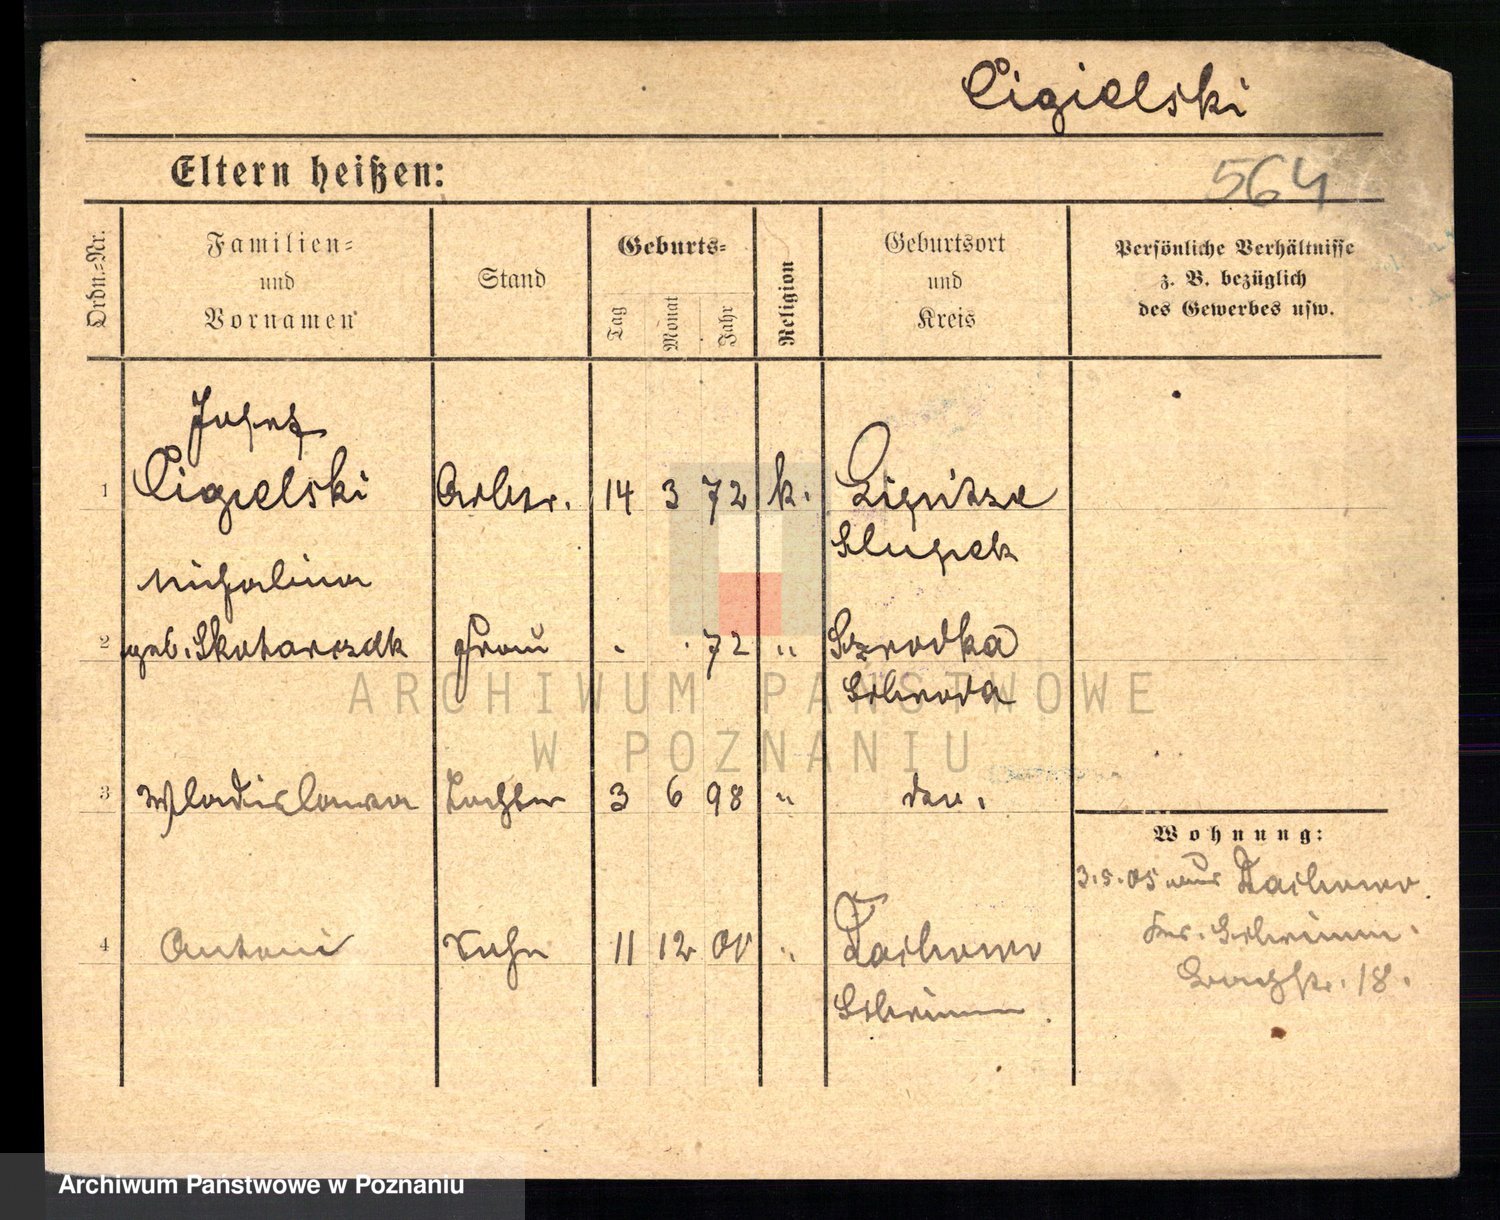 Cigielski
Eltern heißen:
564
Ordn.=Nr.
Familien=
und
Vornamen
Stand
Geburts=
Tag
Monat
Jahr
Religion
Geburtsort
und
Kreis
Persönliche Verhältnisse
z. B. bezüglich
des Gewerbes usw.
Josef
1 Cigielski Arbtr. 14 3 72 k.
Slupek
Michalina
2 geb. Skotarczak Frau " " 72 " Szrodka
Schroda
3 Wladislawa Tochter 3 6 98 " das.
Wohnung:
3.5.05 aus Tarkowo
4 Antoni Sohn 11 12 00 "
Schrimm
Krs. Schrimm.
18.
ARCHIWUM PAŃSTWOWE
W POZNANIU
Archiwum Państwowe w Poznaniu